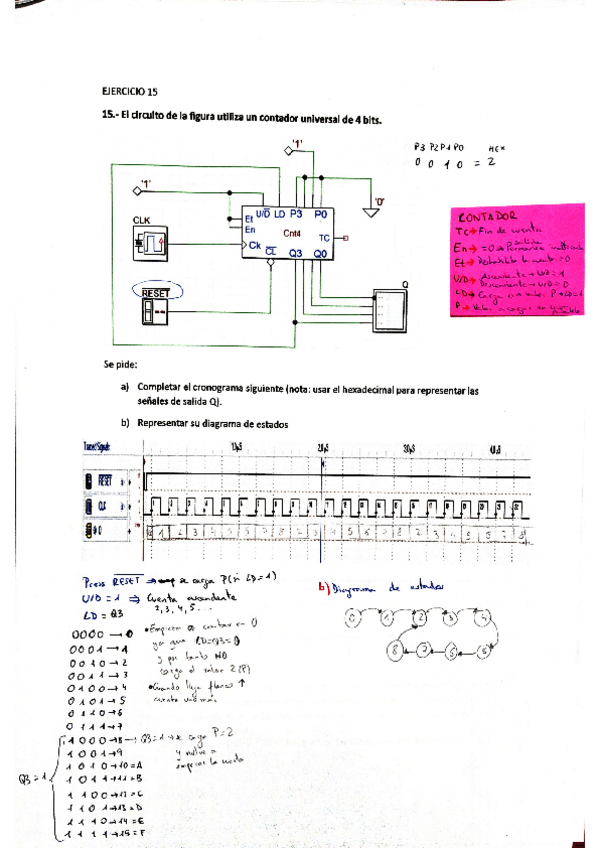 EJERCICIO 15
15.- El circuito de la figura utiliza un contador universal de 4 bits.
P3 P2 P1 P0 HEX
0 0 1 0 = 2
'1'
'1'
'0'
CLK
U/D LD P3 P0
Et
En
Cnt4
TC
Ck
CL Q3 Q0
RESET
Q
CONTADOR
TC → Fin de cuenta
En → =0 → Permanece
Et →
U/D → Ascendente → U/D = 1
Descendente → U/D = 0
LD → Carga
P → Valor a cargar
Se pide:
a) Completar el cronograma siguiente (nota: usar el hexadecimal para representar las
señales de salida Q).
b) Representar su diagrama de estados
10µS 20µS 30µS 40µS
RESET
CLK
Q
0 1 2 3 4 5 6 7 8 2 3 4 5 6 7 8 2 3 4 5 6 7 8
Press RESET → se carga P (si LD=1)
U/D = 1 ⇒ Cuenta ascendente
2, 3, 4, 5...
LD = Q3
0000 → 0
0001 → 1
0010 → 2
0011 → 3
0100 → 4
0101 → 5
0110 → 6
0111 → 7
1000 → 8 → Q3=1 → se carga P=2
1001 → 9
1010 → 10 = A
1011 → 11 = B
1100 → 12 = C
1101 → 13 = D
1110 → 14 = E
1111 → 15 = F
Q3 = 1
Empieza a contar en 0
ya que LD=Q3=0
y por tanto NO
carga el valor 2 (P)
Cuando llega flanco ↑
cuenta uno más
y vuelve a
empezar la cuenta
b) Diagrama de estados
0 1 2 3 4
8 7 6 5